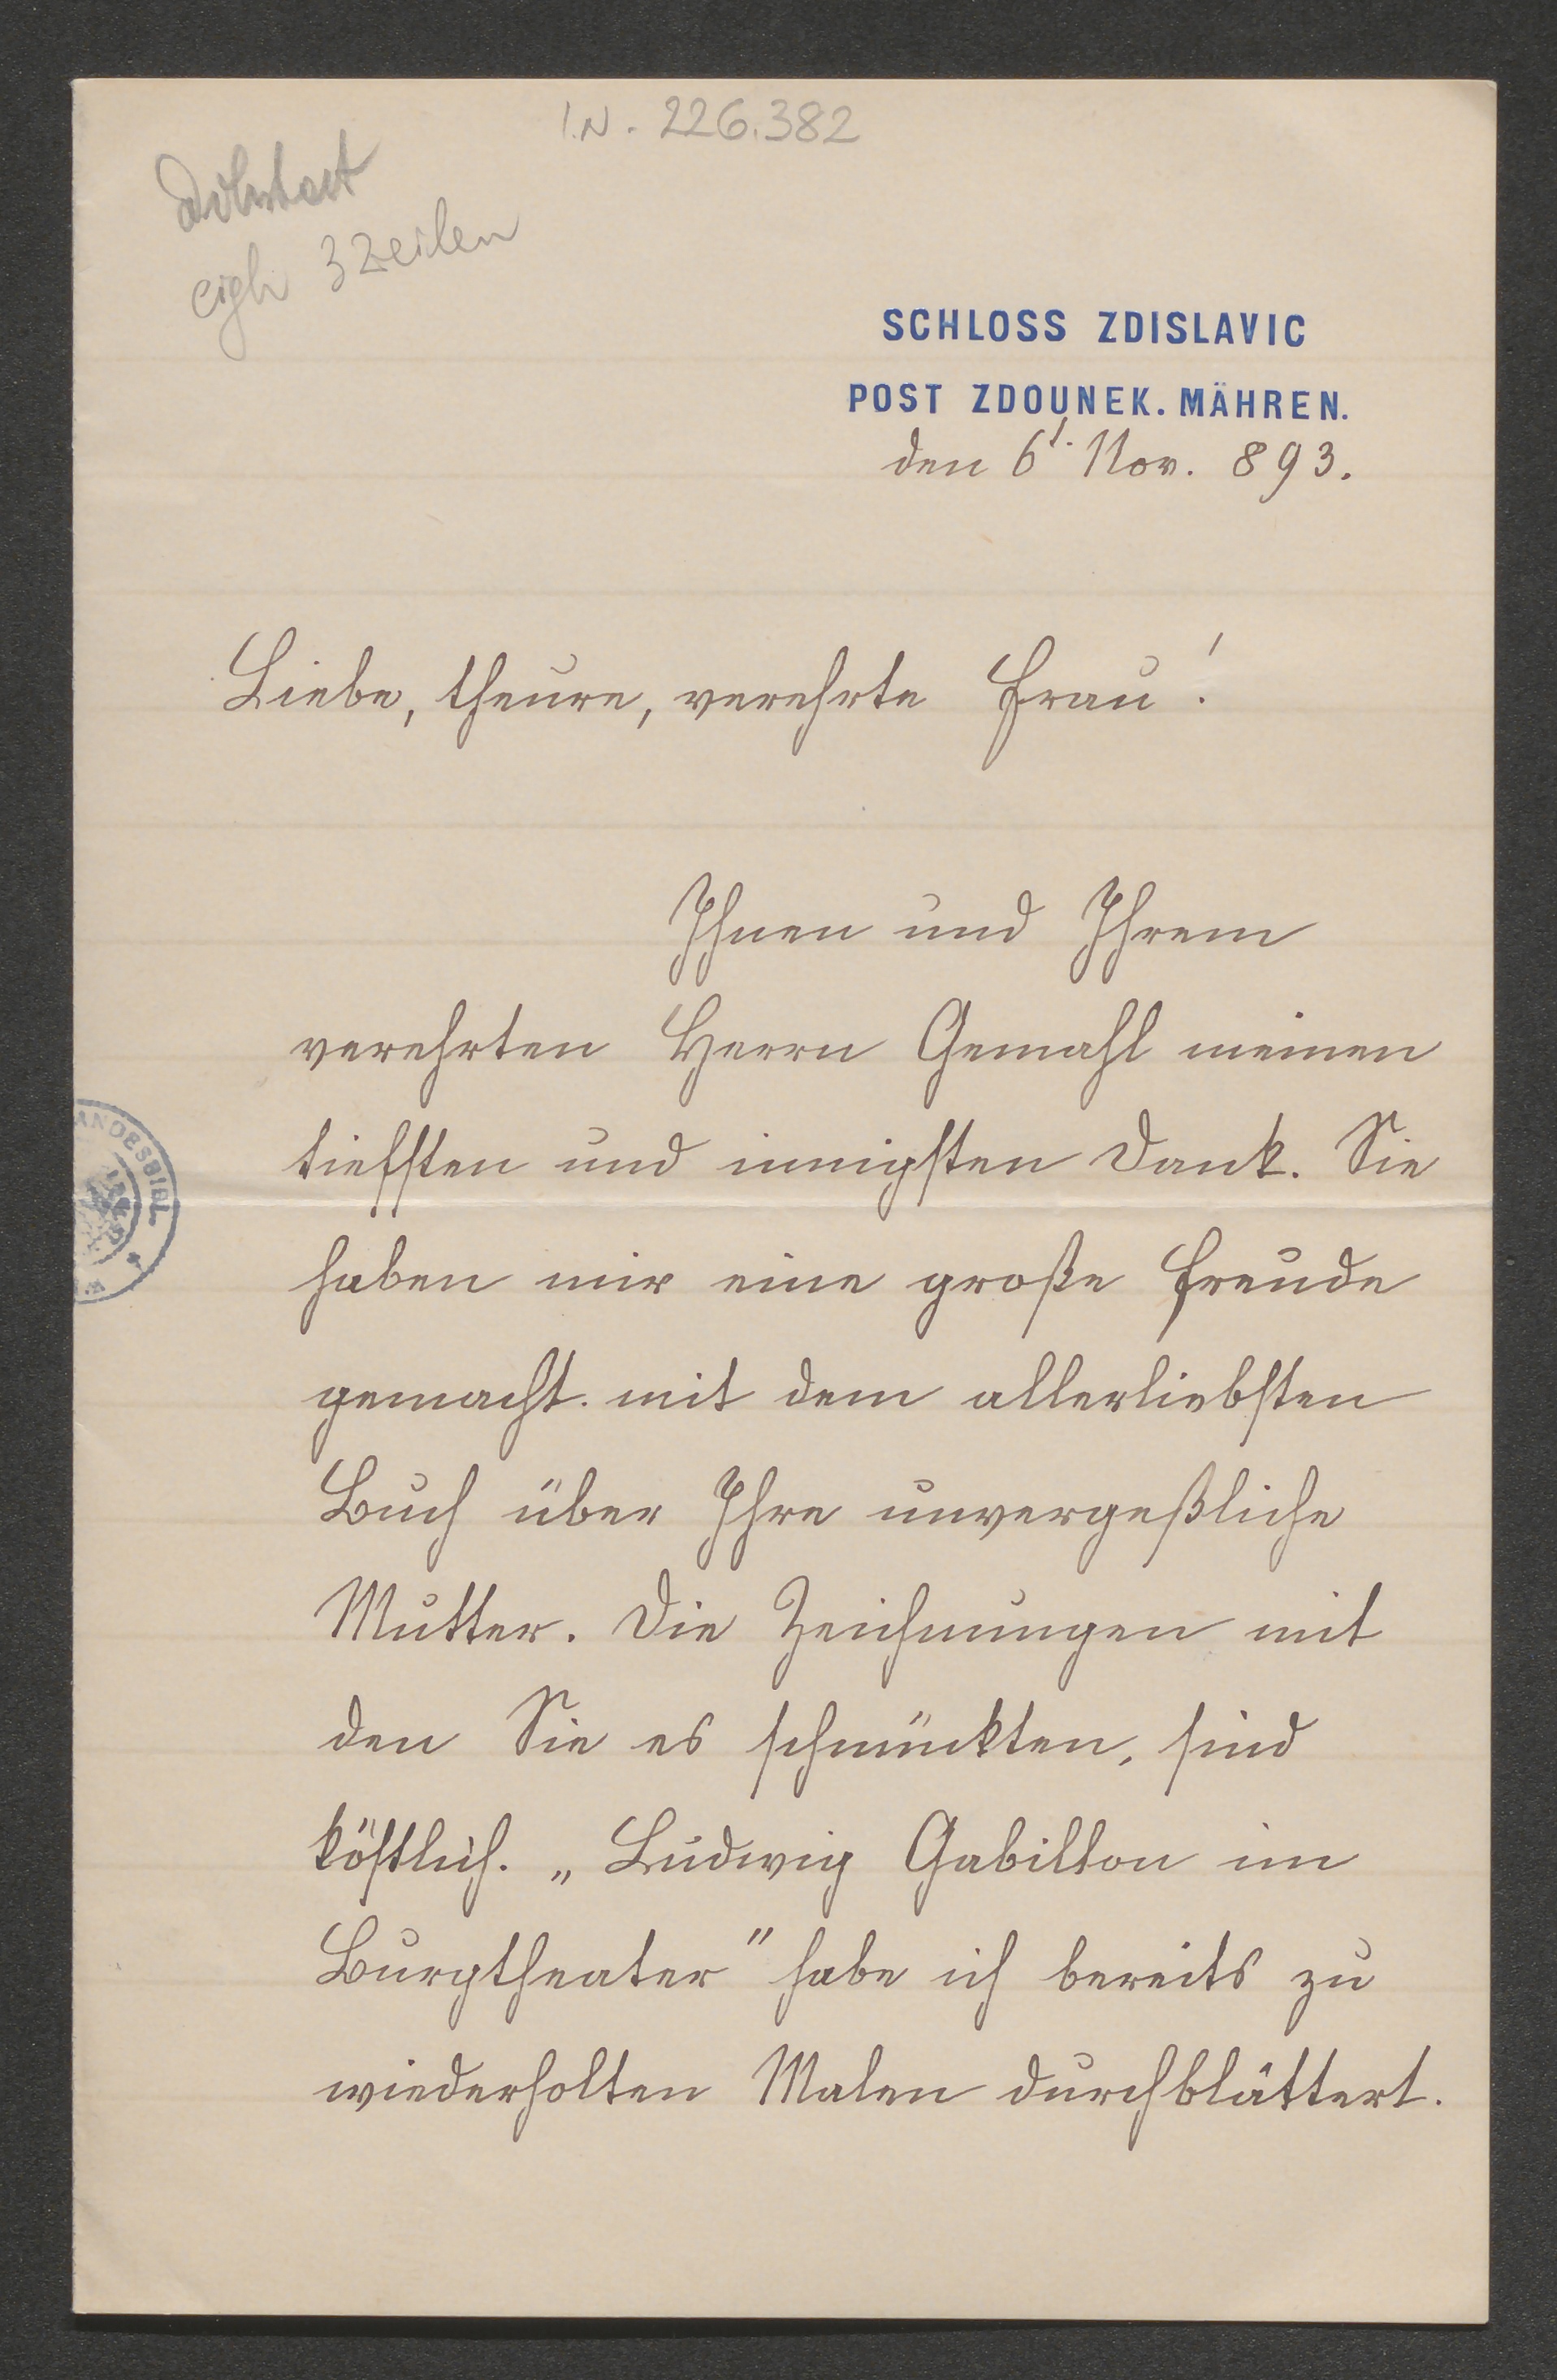 I.N. 226.382
Diktat
eigh 3 Zeilen
SCHLOSS ZDISLAVIC
POST ZDOUNEK. MÄHREN.
den 6t. Nov. 893.
Liebe, theure, verehrte Frau!
Ihnen und Ihrem
verehrten Herrn Gemahl meinen
tiefsten und innigsten Dank. Sie
haben mir eine große Freude
gemacht mit dem allerliebsten
Buch über Ihre unvergeßliche
Mutter. Die Zeichnungen mit
den Sie es schmückten, sind
köstlich. „Ludwig Gabillon im
Burgtheater" habe ich bereits zu
wiederholten Malen durchblättert.
ANDESBIBL